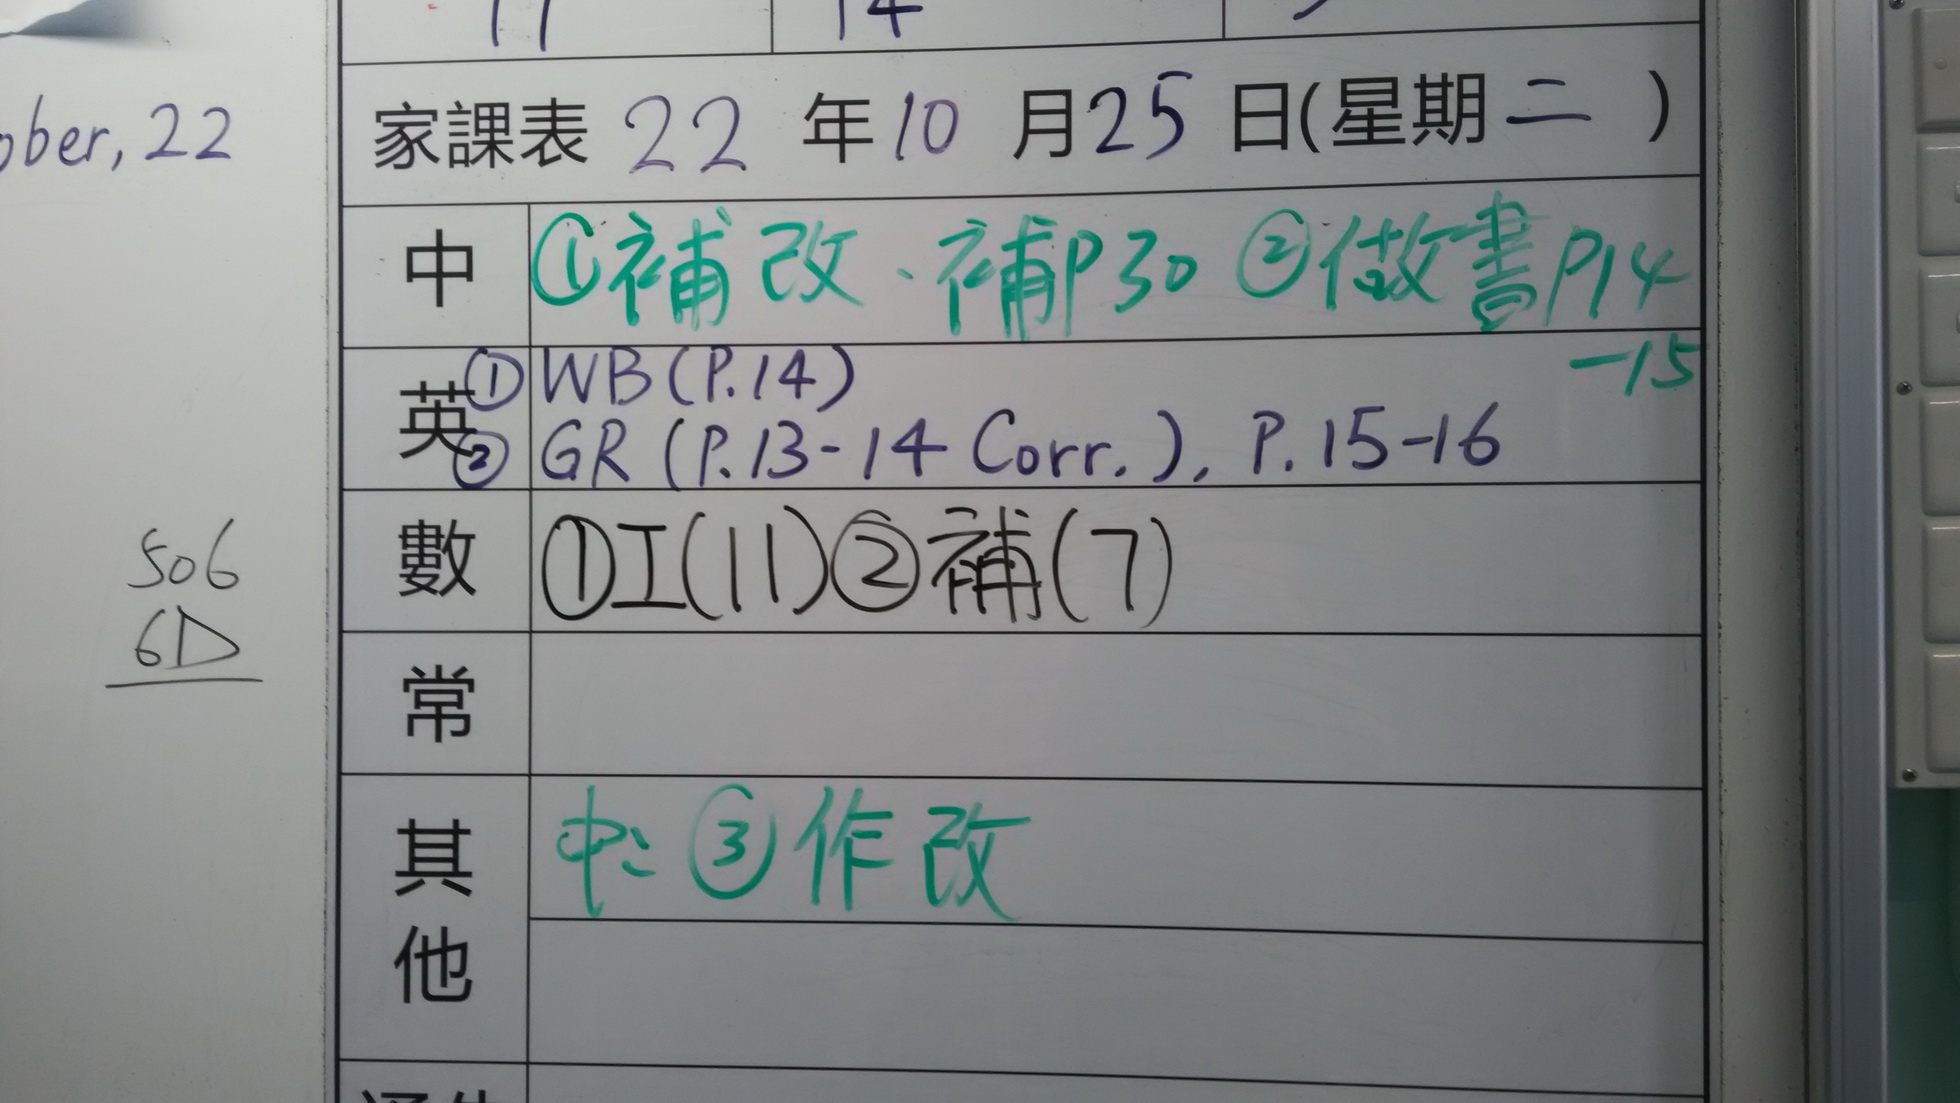 11 14
ober, 22
家課表 22 年 10 月 25 日(星期 二 )
中 ①補改、補P30 ②做書P14
-15
英 ① WB (P.14)
② GR (P.13-14 Corr.), P. 15-16
數 ①工(11)②補(7)
506
6D
常
其他 中: ③作改